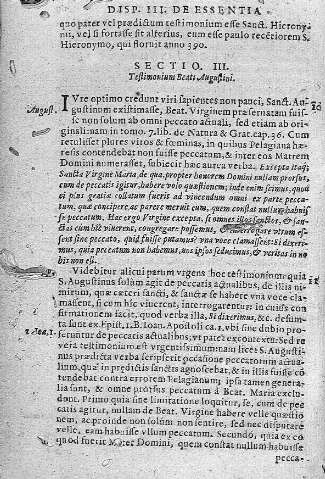 DISP. III. DE ESSENTIA
quo patet vel prædictum testimonium esse Sanct. Hierony-
mi, vel si fortasse sit alterius, eum esse paulo recētiorem S.
Hieronymo, qui floruit anno 390.
SECTIO. III.
Testimonium Beati Augustini.
August. IVre optimo credunt viri sapientes non pauci, Sanct. Au-
gustinum existimasse, Beat. Virginem præservatam fuis-
se non solum ab omni peccato actuali, sed etiam ab ori-
ginali: nam in tomo. 7. lib. de Natura & Grat. cap. 36. Cum
retulisset plures viros & fœminas, in quibus Pelagiana hæ-
resis contendebat non fuisse peccatum, & inter eos Matrem
Domini numerasset, subiecit hæc aurea verba. Excepta itaq;
Sancta Virgine Maria, de qua, propter honorem Domini nullam prorsus,
cum de peccatis agitur, habere volo quæstionem; inde enim scimus, quod
ei plus gratiæ collatum fuerit ad vincendum omni ex parte pecca-
tum, quæ concipere, ac parere meruit eum, quem constat nullum habuis-
se peccatum. Hac ergo Virgine excepta, si omnes illos sanctos, & san-
ctas cum hic viverent, congregare possemus, & interrogare utrum es-
sent sine peccato, quid fuisse putamus? una voce clamassent: Si dixeri-
mus, quia peccatum non habemus, nos ipsos seducimus, & veritas in no
bis non est.
Videbitur alicui parum urgens hoc testimonium quia
S. Augustinus solum agit de peccatis actualibus, de illis ni-
mirum, quæ cæteri sancti, & sanctæ se habere una voce cla-
massent, si cum hic viverent, interrogarentur: in cuius con-
firmationem facit, quod verba illa, Si dixerimus, &c. desum-
pta sunt ex Epist. 1. B. Ioan. Apostoli ca. 1. ubi sine dubio pro-
1. Ioan. 1. feruntur de peccatis actualibus, ut patet ex contextu: Sed re
vera testimonium est urgentissimum, nam licet S. Augusti-
nus prædicta verba scripserit occasione peccatorum actua-
lium, quæ in prædictis sanctis agnoscebat, & in illis fuisse cō
tendebat contra errorem Pelagianum; ipsa tamen genera-
lia sunt, & omne prorsus peccatum à Beat. Maria exclu-
dunt. Primo quia sine limitatione loquitur, se, cum de pec
catis agitur, nullam de Beat. Virgine habere velle quæstio
nem, ac proinde non solum non sentire, sed nec disputare
velle, eam habuisse ullum peccatum. Secundo, quia ex eo
quod fuerit Mater Domini, quem constat nullum habuisse
pecca-